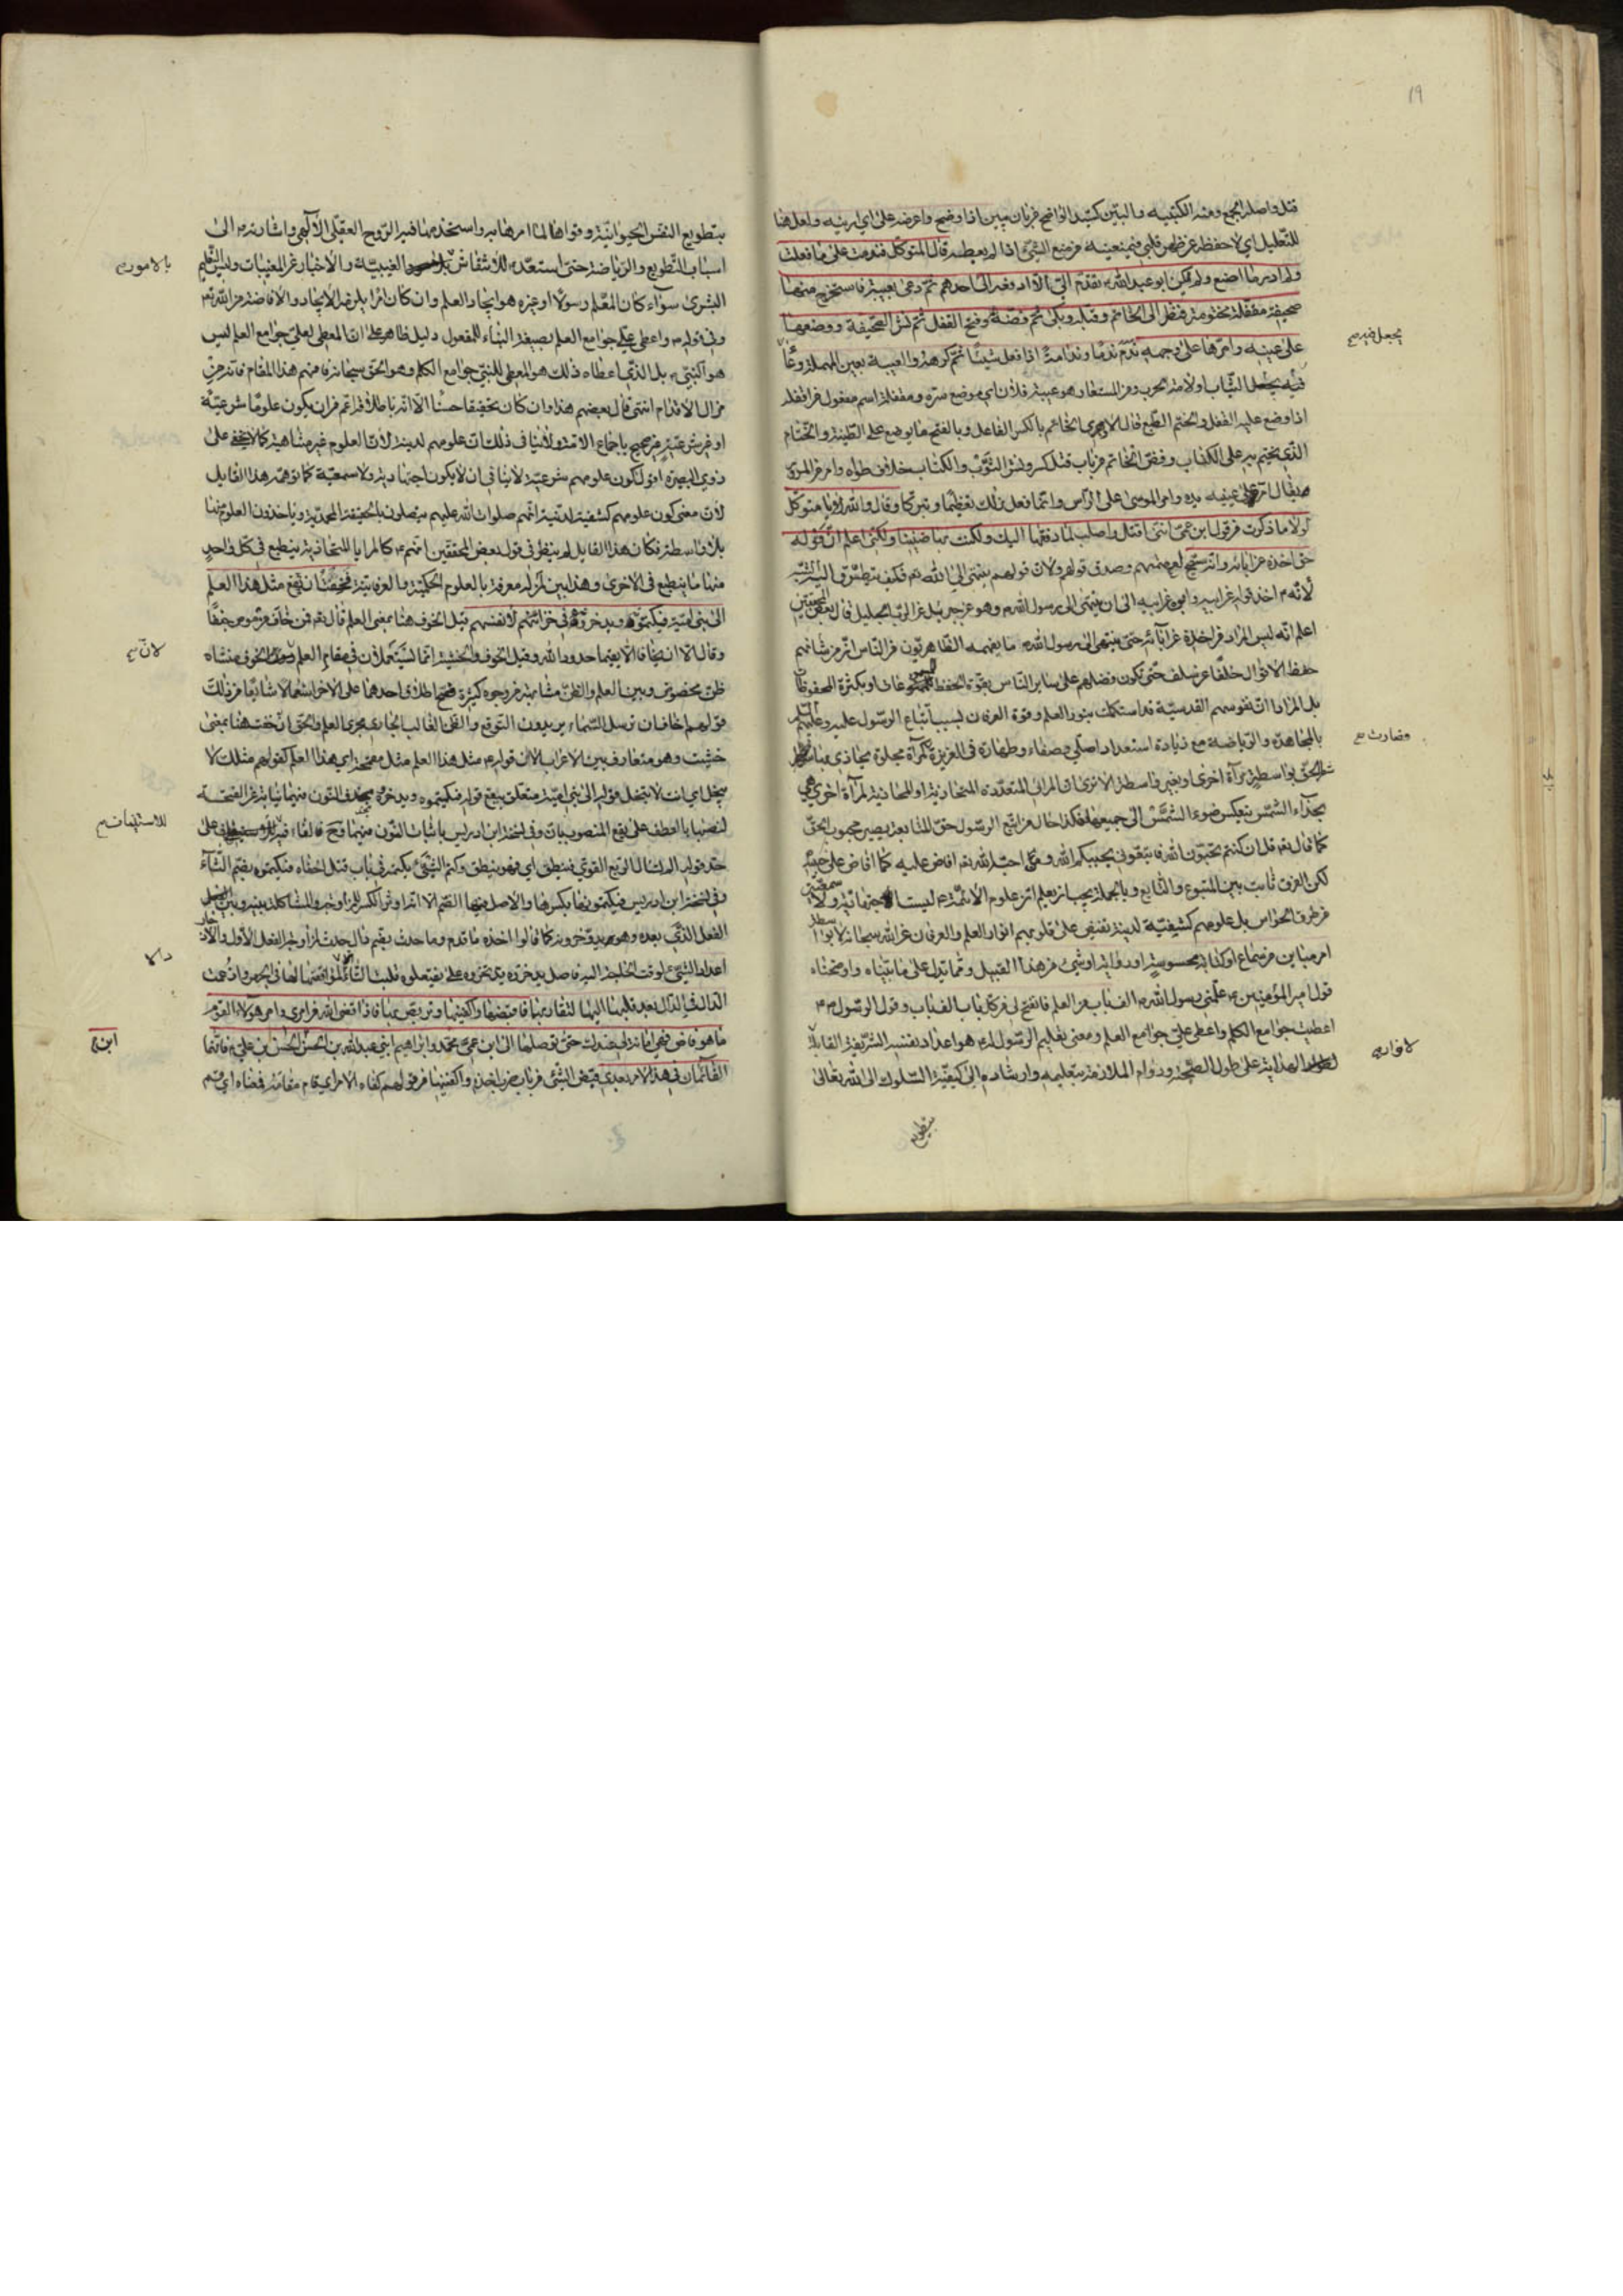 ١٩
قتل واصله الجمع ومنه الكتيبه والبيّن كسيّد الواضح من بان يبين اذا وضح واعرضه على اي ارينه ولعل هنا
للتعليل اي لاحفظه عن ظهر قلبي فيمنعينه من منع الشئ اذا لم يعطه قال المتوكل فندمت على ما فعلت
ولم ادر ما اصنع ولم يكن ابو عبد الله تقدم اليّ الا ادفعه الى احد ثم دعى بعيبة فاستخرج منها
صحيفة مقفلة مختومة فنظر الى الخاتم وقبله وبكى ثم فضه وفتح القفل ثم نشر الصحيفة ووضعها
على عينه وامرّها على وجهه ندم ندما وندامة اذا فعل شيئا ثم كرهه والعيبة بعين مهملة
يجعل فيه
فيه الثياب ولامة الحرب ومن المستعار هو عيبة فلان اي موضع سره ومقفلة اسم مفعول من اقفله
اذا وضع عليه القفل والختم الطبع قال الازهري الخاتم بالكسر الفاعل وبالفتح ما يوضع على الطينة والختام
الذي يختم به على الكتاب وفض الخاتم من باب قتل كسره ونشر الثوب والكتاب خلاف طواه وامر من المرور
يقال امر على عينيه يده وامر الموسى على الراس وانما فعل ذلك تعظيما وتبركا وقال والله يا متوكل
لولا ما ذكرت من قول ابن عمي انني اقتل واصلب لما دفعتها اليك ولكنت بها ضنينا ولكني اعلم ان قوله
حق اخذه عن ابائه وانه سيصح لعصمتهم وصدق قولهم ولان قولهم ينتهي الى الله تع فكيف يتطرق اليه
لانه اخذ قوله عن ابيه وابوه عن ابيه الى ان ينتهي الى رسول الله وهو عن جبرئيل عن الرب الجليل قال بعض المحققين
اعلم انه ليس المراد من اخذه عن آبائه حتى ينتهى الى رسول الله ما يفهمه الظاهريون من الناس ان من شانهم
حفظ الاقوال خلفا عن سلف حتى تكون فضلهم على ساير الناس بقوة الحفظ للمسموعات او بكثرة المحفوظات
بل المراد ان نفوسهم القدسية قد استكملت بنور العلم وقوة العرفان بسبب اتباع الرسول عليه وعليهم السلم
بالمجاهدة والرياضة مع زيادة استعداد اصلي وصفاء وطهارة في الغريزة
فصارت
كمرآة مجلوة يحاذي بها
شطر الحق بواسطة مرآة اخرى او بغير واسطة الا ترى ان المرائي المتعددة المتحاذية او المحاذية لمرآة اخرى هي
بحذاء الشمس ينعكس ضوء الشمس الى جميعها فكذا حال من اتبع الرسول حق المتابعة يصير محبوب الحق
كما قال تع قل ان كنتم تحبون الله فاتبعوني يحببكم الله ومن احبه الله تع افاض عليه كما افاض على حبيبه
لكن الفرق ثابت بين المتبوع والتابع وبالجملة يجب ان يعلم ان علوم الائمة ليست اجتهادية ولا سمعية
من طرق الحواس بل علومهم كشفية لدنية تفيض على قلوبهم انوار العلم والعرفان عن الله سبحانه لا بواسطة
امر مباين من سماع او كتابة محسوسة او رواية او شئ من هذا القبيل ومما يدل على ما بيناه واوضحناه
قول امير المؤمنين علمني رسول الله الف باب من العلم فانفتح لي من كل باب الف باب وقول الرسول
اعطيت جوامع الكلم واعطي علي جوامع العلم ومعنى تعليم الرسول له هو اعداد نفسه الشريفة القابلة
لانوار
الهداية على طول الصحبة ودوام الملازمة بتعليمه وارشاده الى كيفية السلوك الى الله تعالى
بتطويع
بتطويع النفس الحيوانية وقواها لما امرها به واستخدمها فيه الروح العقلي الالهي واشارته الى
اسباب التطويع والرياضة حتى استعد للانتقاش
بالامور
الغيبية والاخبار عن المغيبات وليس التعليم
البشرى سواء كان المعلم رسولا او غيره هو ايجاد العلم وان كان امرا يلزمه الايجاد والافاضة من الله تع
وفي قوله واعطي علي جوامع العلم بصيغة البناء للمفعول دليل ظاهر على ان المعطي لعلي جوامع العلم ليس
هو النبي بل الذي اعطاه ذلك هو المعطي للنبي جوامع الكلم وهو الحق سبحانه فافهم هذا المقام فانه من
مزال الاقدام انتهى قال بعضهم هذا وان كان تحقيقا حسنا الا انه باطل لاقراره من ان يكون علوما شرعية
او غير شرعية غير صحيح باجماع الامة ولا ينافي ذلك ان علومهم لدنية لان العلوم غير متناهية كما لا يخفى على
ذوي البصيرة اقول كون علومهم شرعية لا ينافي ان لا يكون اجتهادية ولا سمعية كما توهمه هذا القايل
لان معنى كون علومهم كشفية لدنية انهم صلوات الله عليهم يتصلون بالحقيقة المحمدية وياخذون العلوم منها
بلا واسطة فكان هذا القايل لم ينظر في قول بعض المحققين انهم كالمرايا المتحاذية ينطبع في كل واحد
منها ما ينطبع في الاخرى وهذا بين لمن له معرفة بالعلوم الحكمية والعرفانية فخفت ان يقع مثل هذا العلم
الى بني امية فيكتموه ويدخروه في خزائنهم لانفسهم قيل الخوف هنا بمعنى العلم قال تع فمن خاف من موص جنفا
وقال الا ان يخافا الا يقيما حدود الله وقيل الخوف والخشية انما يستعملان في مقام العلم
لان
الخوف منشاه
ظن مخصوص وبين العلم والظن مشابهة من وجوه كثيرة فصح اطلاق احدهما على الاخر استعمالا شايعا من ذلك
قولهم اخاف ان ترسل السماء يريدون التوقع والظن الغالب الجاري مجرى العلم والحق ان خفت هنا بمعنى
خشيت وهو متعارف بين الاعراب الان قوله مثل هذا العلم مثل مقحمة اي هذا العلم كقولهم مثلك لا
يبخل اي انت لا تبخل قوله الى بني امية متعلق بيقع قوله فيكتموه ويدخروه بحذف النون منهما نيابة عن الفتحة
لنصبهما بالعطف على يقع المنصوب بان وفي نسخة ابن ادريس باثبات النون فيهما فح فالفاء فيه
للاستيناف
على
حد قوله الم تسال الربع القوي فينطق اي فهو ينطق وكتم الشئ يكتمه من باب قتل اخفاه فيكتموه بضم التاء
وفي نسخة ابن ادريس فيكتمونها بكسرها والاصل فيها الضم الا انه اوثر الكسر
الفعل الذي بعده وهو يدخرونه كما قالوا اخذه ما قدم وما حدث بضم دال حدث لمزاوجة الفعل الاول والادخار
اعداد الشئ لوقت الحاجة اليه فاصل يدخروه يذتخروه على يفتعلوه قلبت التاء دالا
الدال في الدال بعد قلبها اليها لتقاربهما فاقبضها واكفنيها وتربص بها فاذا قضى الله من امري وامر هؤلاء القوم
ما هو قاض فهي امانة لي عندك حتى توصلها الى ابن عمي محمد وابراهيم ابني عبد الله بن الحسن بن الحسن بن علي فانهما
القائمان في هذا الامر بعدي قبض الشئ من باب ضرب اخذه واكفنيها من قولهم كفاه الامر اي قام مقامه فيه